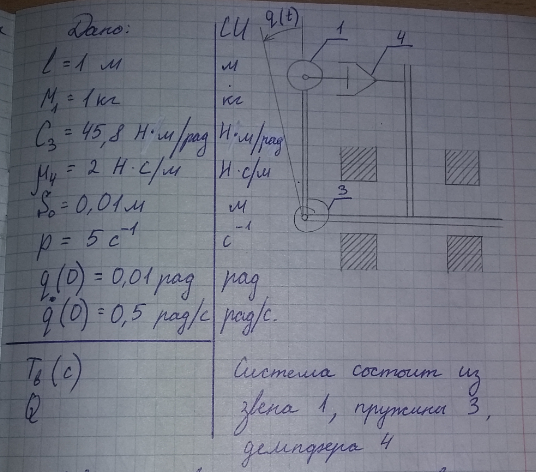 Дано:
СИ
q(t)
1
4
l = 1 м
м
M₁ = 1 кг
кг
C₃ = 45,8 Н·м/рад
Н·м/рад
μ₄ = 2 Н·с/м
Н·с/м
3
S₀ = 0,01 м
м
p = 5 с⁻¹
с⁻¹
q(0) = 0,01 рад
рад
q̇(0) = 0,5 рад/с
рад/с.
Tв (с)
Q
Система состоит из
звена 1, пружины 3,
демпфера 4